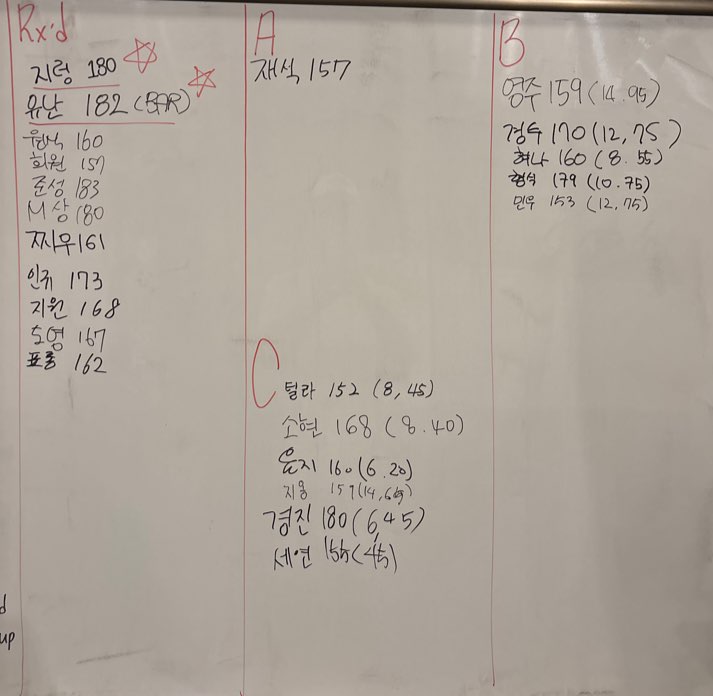 Rx'd
지령 180
유난 182 (BAR)
160
희원 157
준성 183
M상 180
찌우 161
인쥐 173
지원 168
도영 167
표종 162
A
재석 157
C
털라 152 (8,45)
소현 168 (8.40)
윤지 160 (6.20)
지용
경진 180 (6,45)
세연 155 (45)
B
영주 159 (14.95)
경두 170 (12,75)
혀나 160 (8.55)
형식 179 (10.75)
민우 153 (12,75)
d
up